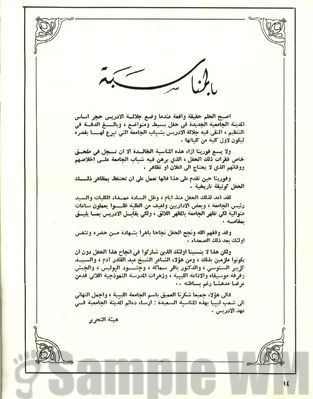 بالمناسبة
اصبح الحلم حقيقة واقعة عندما وضع جلالة الادريس حجر اساس
المدينة الجامعية الجديدة في حفل بسيط ومتواضع ، وبالغ الدقة في
التنظيم ، التقى فيه جلالة الادريس بشباب الجامعة التي تبرع لها بقصره
ليكون لاول كلية من كلياتها .
ولا يسع فورينا ازاء هذه المناسبة الخالدة الا ان تسجل في ملحق
خاص فقرات ذلك الحفل ، الذي برهن فيه شباب الجامعة على اخلاصهم
ووفائهم الذي لا يحتاج الى اعلان او تظاهر .
وفورينا حين تقدم على هذا فانها تعمل على ان تحتفظ بمظاهر ذلك
الحفل كوثيقة تاريخية .
لقد اعد لذلك الحفل منذ ايام ، وظل السادة عمداء الكليات والسيد
رئيس الجامعة ، وبعض الاداريين ولفيف من الطلبة ظلوا يعملون ساعات
متوالية لكي تظهر الجامعة بالمظهر اللائق ، ولكي يقابل الادريس بما يليق
بمقامه .
وقد وفقهم الله ونجح الحفل نجاحا باهرا بشهادة من حضره وتنفس
اولئك بعد ذلك الصعداء .
ولكن هذا لا ينسينا اولئك الذين شاركوا في انجاح هذا الحفل دون ان
يكونوا ملزمين بذلك ، ومن هؤلاء الشاعر الشيخ عبد القادر ، والسيد
الزبير السنوسي ، والدكتور باقر سماكة ، وجنود البوليس ، والجيش
وفرقة موسيقاه والاذاعة الليبية ، وزهرات المدرسة النموذجية اللائي قدمن
عرضا مدهشا رغم بساطته ..
فالى هؤلاء جميعا شكرنا العميق باسم الجامعة الليبية ، واجمل التهاني
الى شعب ليبيا بهذه المناسبة السعيدة : ارساء دعائم المدينة الجامعية في
عهد الادريس .
هيئة التحرير
١٤
Sample WM